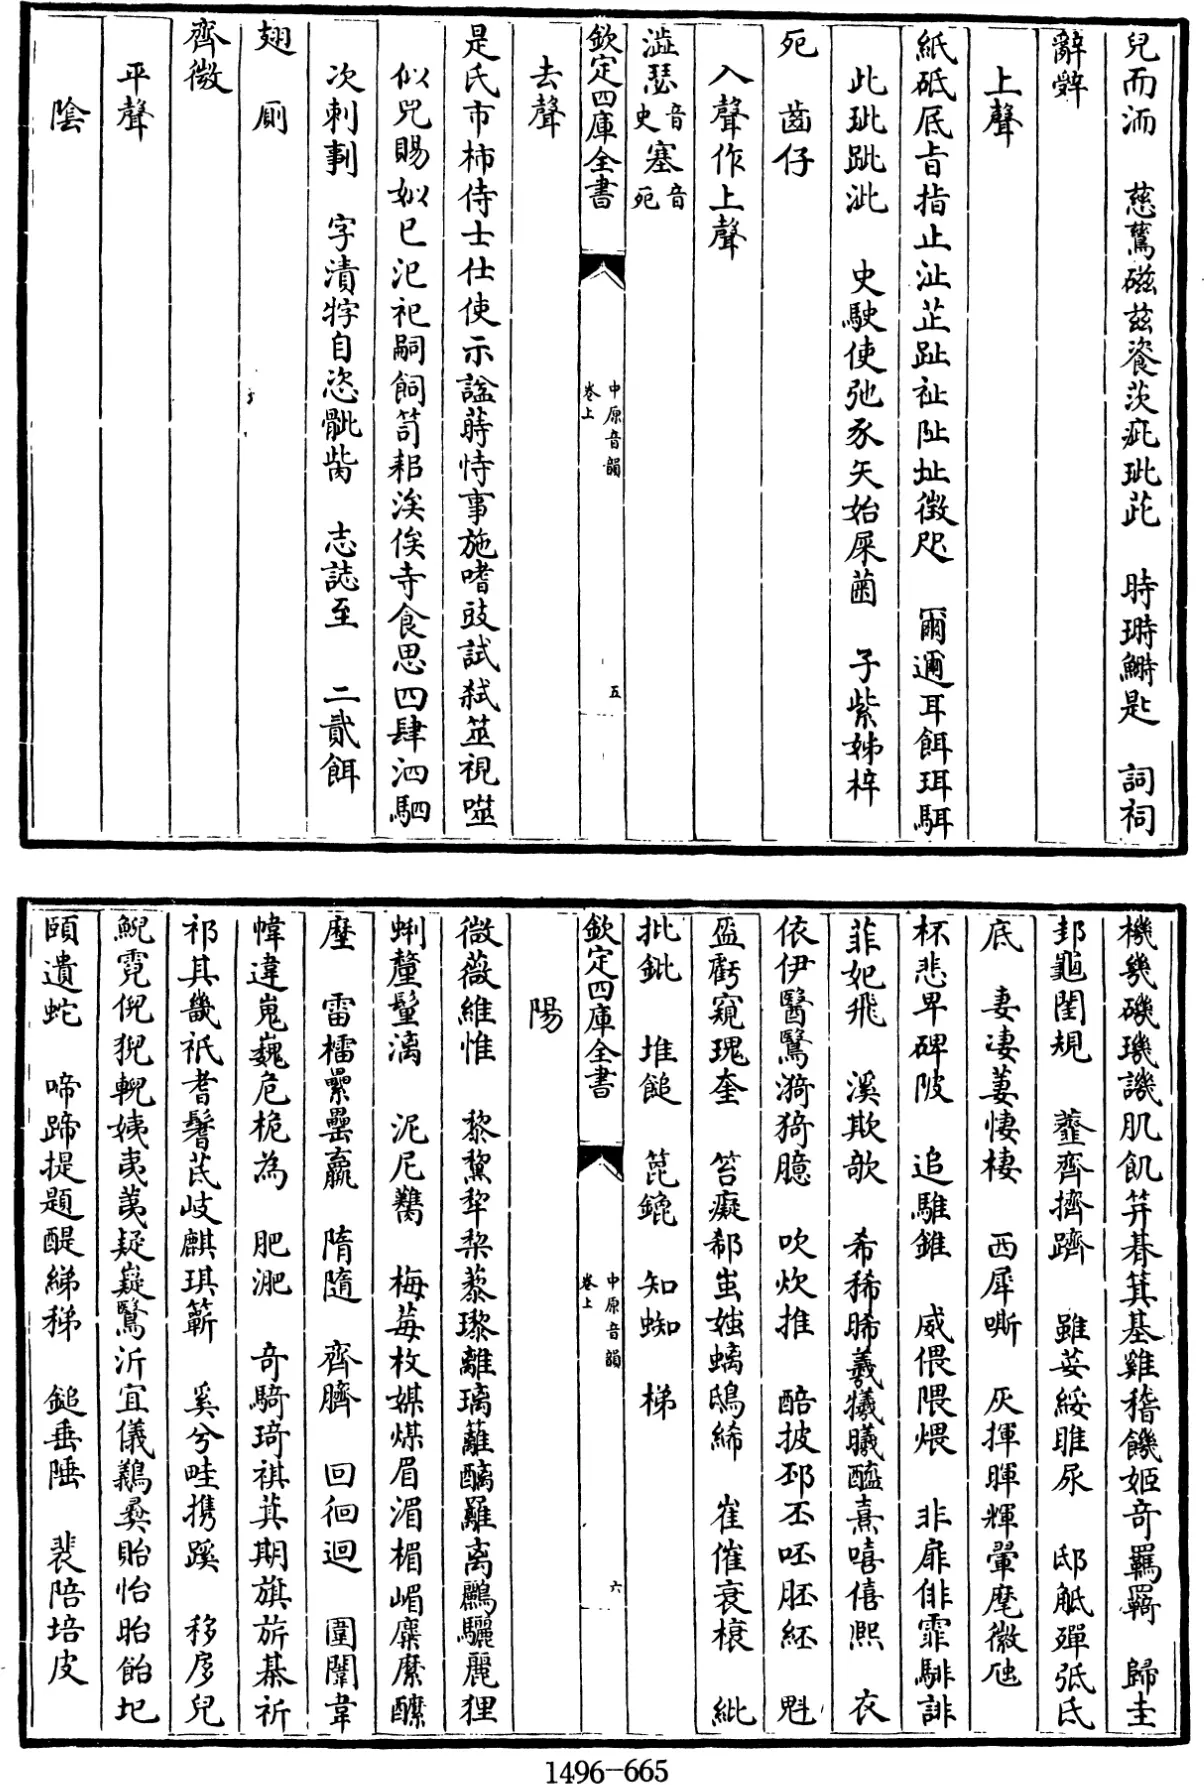 兒而洏　慈鶿磁兹餈茨疵玼茈　時塒鰣匙　詞祠
辭辤
上聲
紙砥厎旨指止沚芷趾祉阯址徵咫　爾邇耳餌珥駬
此玼跐泚　史駛使弛豕矢始屎菌　子紫姊梓
死　齒仔
入聲作上聲
澁瑟音史塞音死
欽定四庫全書
中原音韻
卷上
五
去聲
是氏市柿侍士仕使示諡蒔恃事施嗜豉試弒筮視噬
似兕賜姒巳汜祀嗣飼笥耜涘俟寺食思四肆泗駟
次刺剚　字漬牸自恣骴胔　志誌至　二貳餌
翅　厠
齊微
平聲
陰
機幾磯璣譏肌飢笄朞箕基雞稽饑姬奇羈羇　歸圭
邽龜閨規　虀齊擠躋　雖荽綏睢尿　邸觝殫弤氐
底　妻凄萋悽棲　西犀嘶　灰揮暉輝翬麾徽虺
杯悲卑碑陂　追騅錐　威偎隈煨　非扉俳霏騑誹
菲妃飛　溪欺欹　希稀晞羲犧曦醯熹嘻僖熙　衣
依伊醫鷖漪猗臆　吹炊推　醅披邳丕呸胚紕　魁
盔虧窺瑰奎　笞癡郗蚩媸螭鴟絺　崔催衰榱　紕
批鈚　堆鎚　箆鎞　知蜘　梯
欽定四庫全書
中原音韻
卷上
六
陽
微薇維惟　黎黧犂棃藜瓈離璃蘺醨羅离鸝驪麗狸
蜊釐髦漓　泥尼臡　梅莓枚媒煤眉湄楣嵋糜縻醾
壓　雷檑纍罍羸　隋隨　齊臍　回徊迴　圍闈韋
幃違嵬巍危桅為　肥淝　奇騎琦祺萁期旗旂綦祈
祁其畿祇耆鬐芪岐麒琪蘄　奚兮畦携蹊　移扅兒
鯢霓倪猊輗姨夷荑疑嶷鷖沂宜儀鸃彛貽怡眙飴圯
頤遺蛇　啼蹄提題醍綈稊　鎚垂陲　裴陪培皮
1496-665